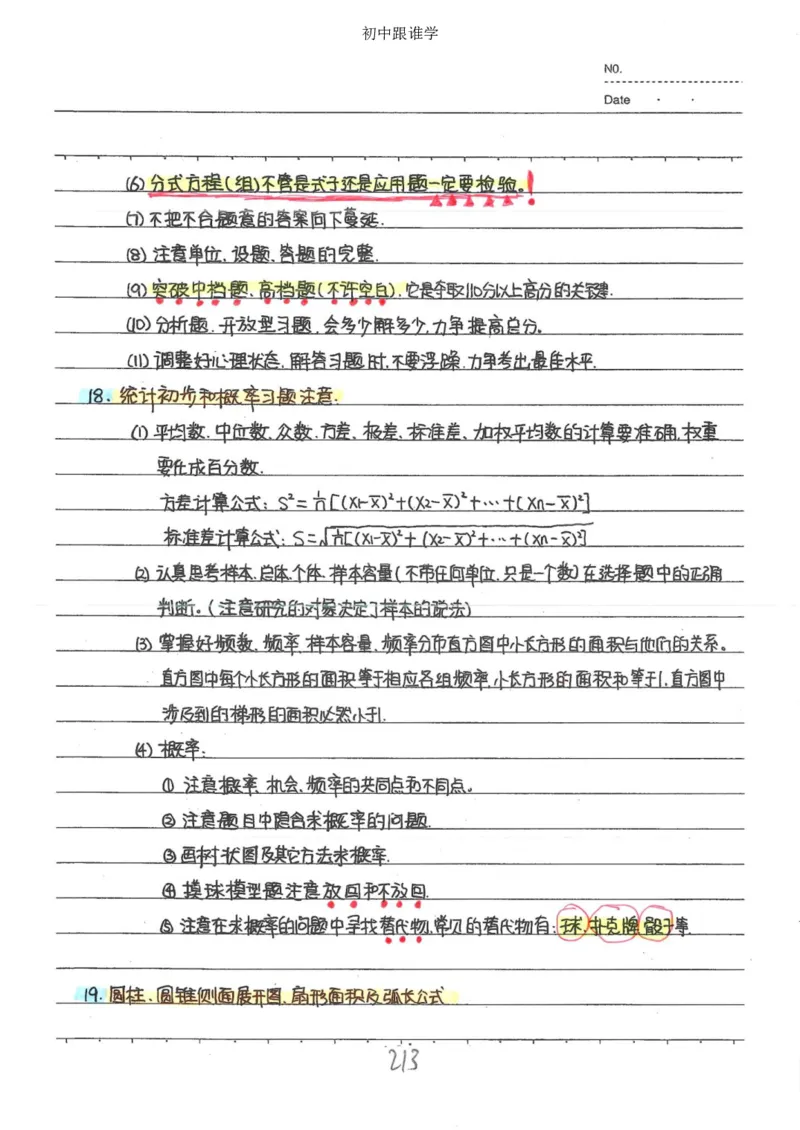 初中跟谁学
NO.
Date
(6) 分式方程(组)不管是式子还是应用题一定要检验。!
(7) 不把不合题意的答案向下蔓延.
(8) 注意单位、设题、答题的完整.
(9) 突破中档题、高档题(不许空白),它是夺取110分以上高分的关键.
(10) 分析题、开放型习题,会多少解多少,力争提高总分。
(11) 调整好心理状态,解答习题时,不要浮躁,力争考出最佳水平.
18. 统计初步和概率习题注意.
(1) 平均数、中位数、众数、方差、极差、标准差、加权平均数的计算要准确,权重
要化成百分数.
方差计算公式: S²=1/n[(X1-X̄)²+(X2-X̄)²+…+(Xn-X̄)²]
标准差计算公式: S=√1/n[(X1-X̄)²+(X2-X̄)²+…+(Xn-X̄)²]
(2) 认真思考样本、总体、个体、样本容量(不带任何单位,只是一个数)在选择题中的正确
判断。(注意研究的对象决定了样本的说法)
(3) 掌握好频数、频率、样本容量、频率分布直方图中小长方形的面积与他们的关系。
直方图中每个小长方形的面积等于相应各组频率,小长方形的面积和等于1,直方图中
涉及到的梯形的面积必然小于1.
(4) 概率:
① 注意概率、机会、频率的共同点和不同点。
② 注意题目中隐含求概率的问题.
③ 画树状图及其它方法求概率.
④ 摸球模型题注意放回和不放回.
⑤ 注意在求概率的问题中寻找替代物,常见的替代物有:球,扑克牌,骰子等.
19. 圆柱、圆锥侧面展开图、扇形面积及弧长公式
213